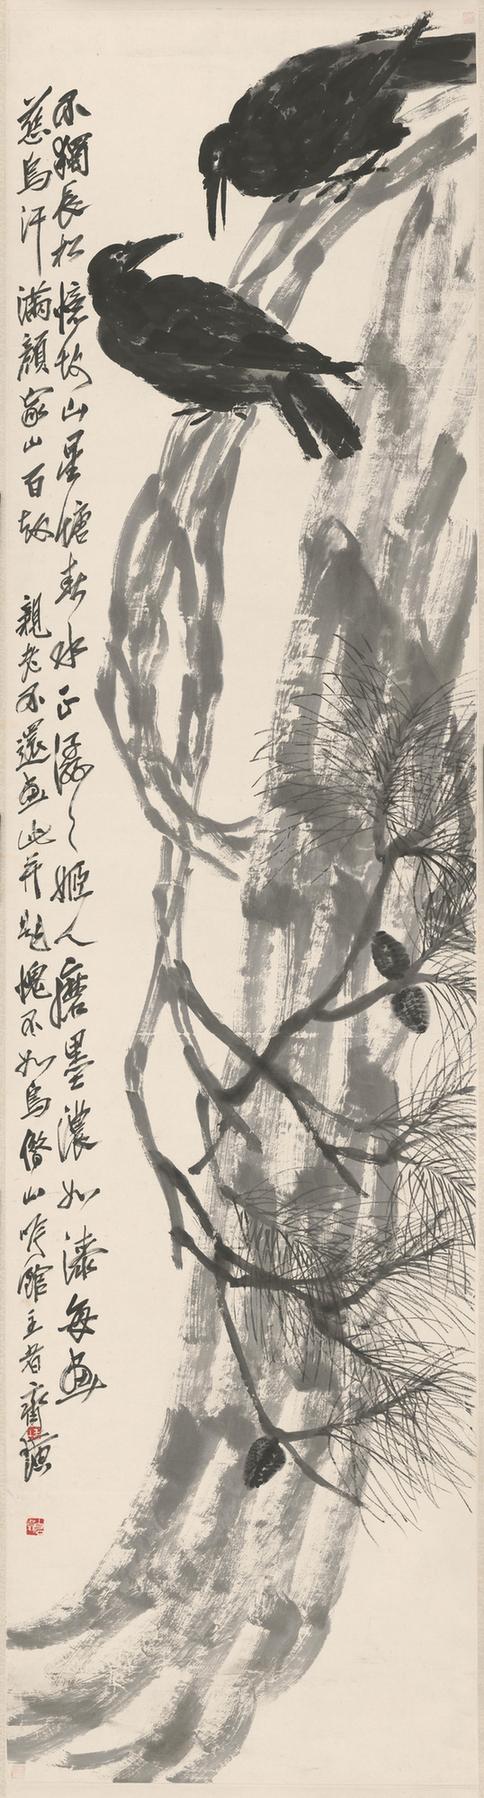 不獨長松憶故山星塘春水正潺〻姬人磨墨濃如漆每畫
慈烏汗滿顏家山百劫 親老不還畫此并題愧不如烏借山吟館主者齊璜